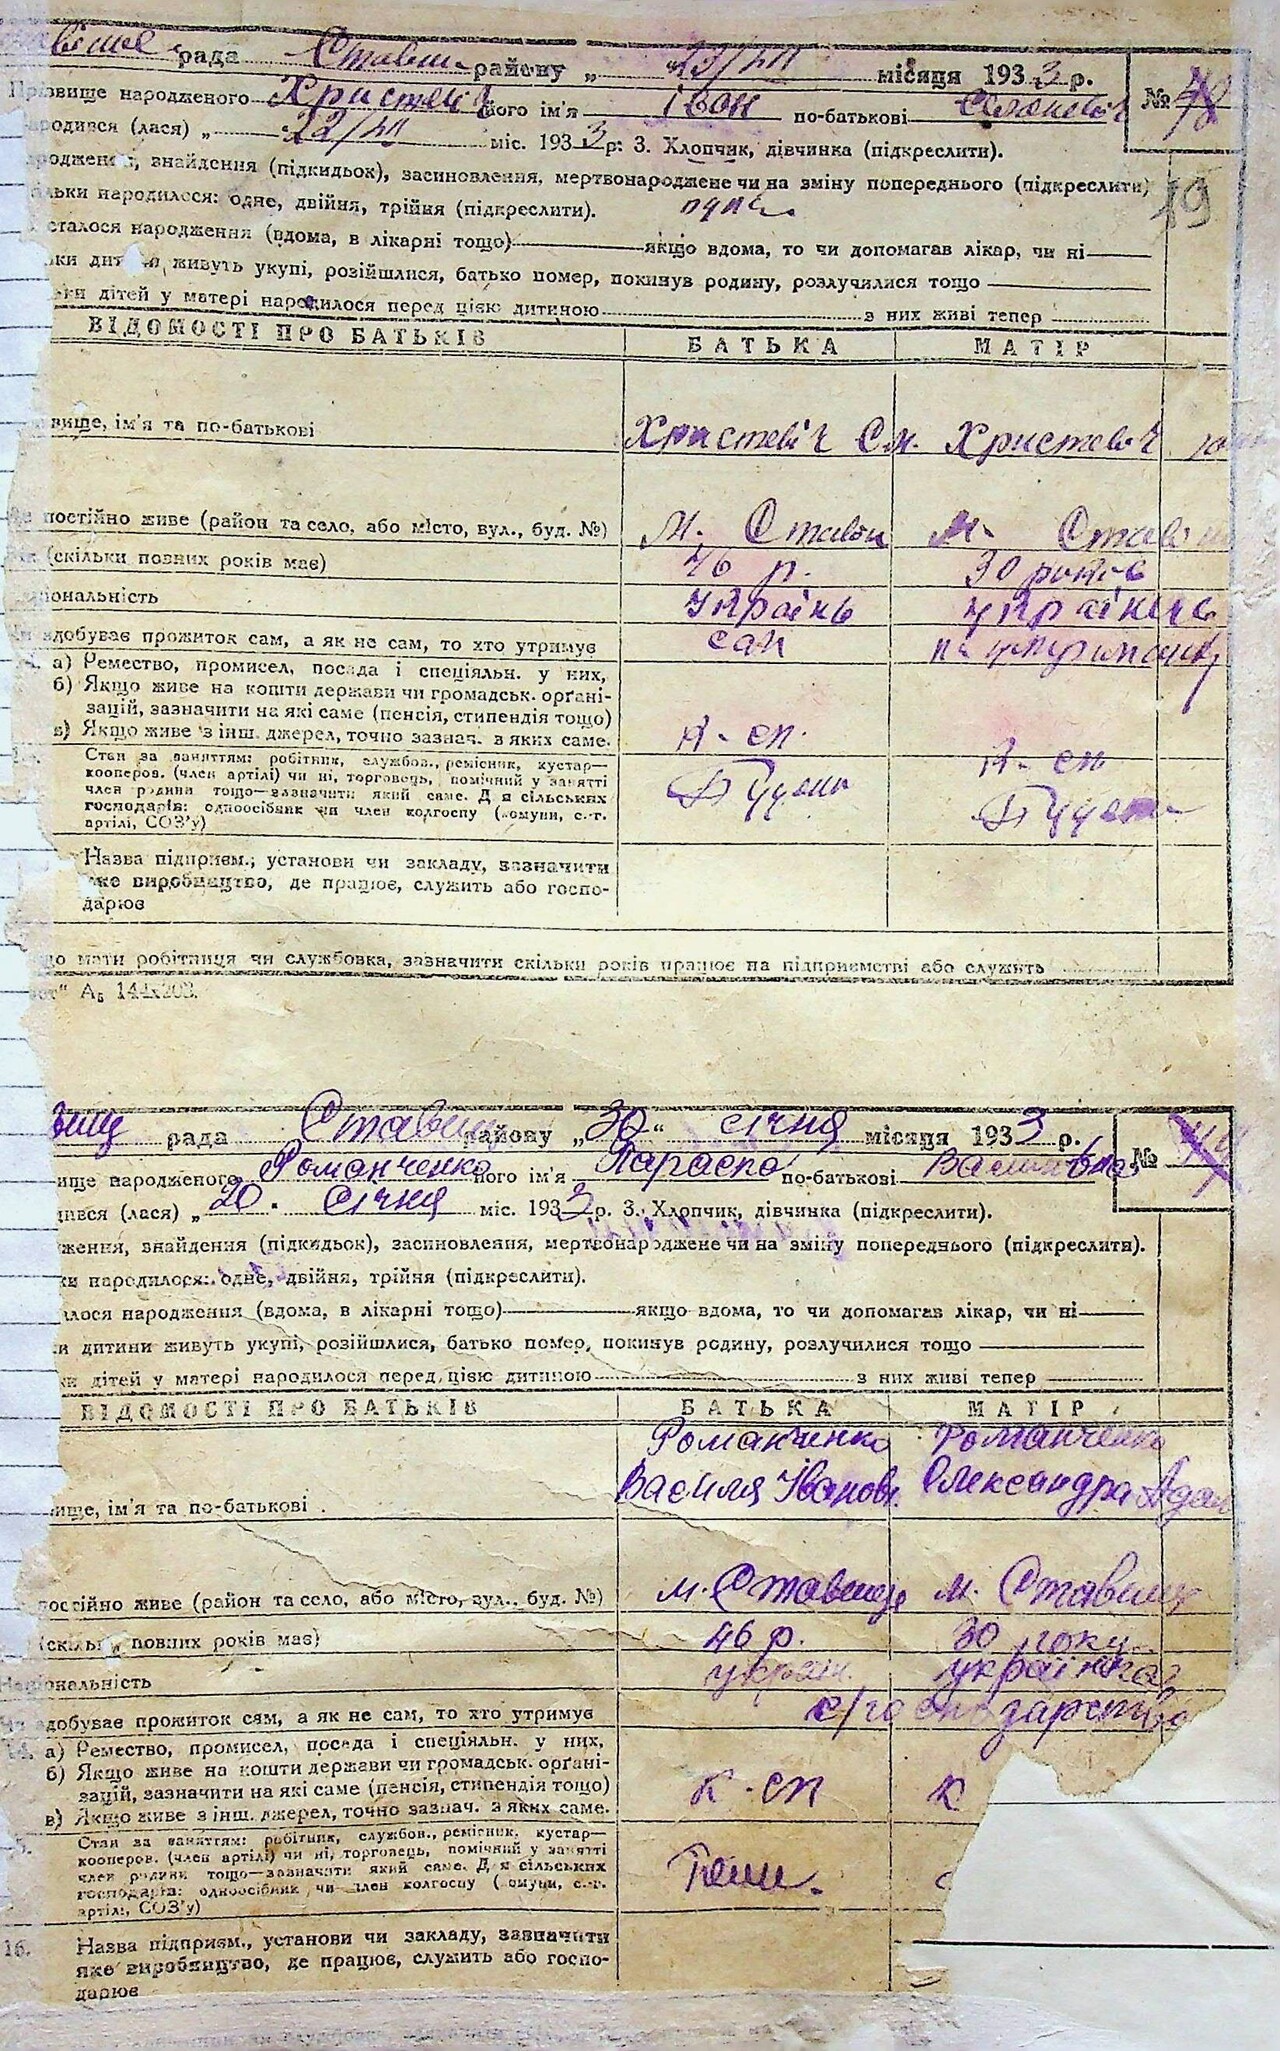 рада Стави району „ 23/ХІІ місяця 1933 р.
№
Прізвище народженого Христевіч його ім'я Іван по-батькові
народився (лася) „ 22/ХІІ міс. 1933 р. 3. Хлопчик, дівчинка (підкреслити).
народження, знайдення (підкидьок), засиновлення, мертвонароджене чи на зміну попереднього (підкреслити)
кільки народилося: одне, двійня, трійня (підкреслити).
19
сталося народження (вдома, в лікарні тощо) якщо вдома, то чи допомагав лікар, чи ні
ьки дитини живуть укупі, розійшлися, батько помер, покинув родину, розлучилися тощо
ьки дітей у матері народилося перед цією дитиною з них живі тепер
ВІДОМОСТІ ПРО БАТЬКІВ БАТЬКА МАТІР
вище, ім'я та по-батькові Христевіч См. Христевіч
Де постійно живе (район та село, або місто, вул., буд. №) м. Стави м. Стави
Вік (скільки повних років має) 46 р. 30 років
ціональність Україн
Чи здобуває прожиток сам, а як не сам, то хто утримує сам
а) Ремество, промисел, посада і спеціяльн. у них,
б) Якщо живе на кошти держави чи громадськ. орґані-
зацій, зазначити на які саме (пенсія, стипендія тощо)
в) Якщо живе з інш. джерел, точно зазнач. з яких саме. К-сп. К-сп
Стан за заняттям: робітник, службов., ремісник, кустар—
кооперов. (член артілі) чи ні, торговець, помічний у занятті
член родини тощо—зазначити який саме. Д я сільських
господарів: одноосібник чи член колгоспу (комуни, с.-г.
артілі, СОЗ'у)
Назва підприєм., установи чи закладу, зазначити
яке виробництво, де працює, служить або госпо-
дарює
що мати робітниця чи службовка, зазначити скільки років працює на підприємстві або служить
от" А₅ 144х203.
вищ рада Ставищ району „30" січня місяця 1933 р.
№
вище народженого Романченко його ім'я Параска по-батькові Василівна
дився (лася) „ 20. січня міс. 1933 р. 3. Хлопчик, дівчинка (підкреслити).
ження, знайдення (підкидьок), засиновлення, мертвонароджене чи на зміну попереднього (підкреслити).
ки народилося: одне, двійня, трійня (підкреслити).
алося народження (вдома, в лікарні тощо) якщо вдома, то чи допомагав лікар, чи ні
и дитини живуть укупі, розійшлися, батько помер, покинув родину, розлучилися тощо
ки дітей у матері народилося перед цією дитиною з них живі тепер
ВІДОМОСТІ ПРО БАТЬКІВ БАТЬКА МАТІР
Романченко Романченко
вище, ім'я та по-батькові Василя Іванов. Олександра Адам
постійно живе (район та село, або місто, вул., буд. №) м. Ставище м. Ставище
(скільки повних років має) 46 р. 30 року
Національність україн. українка
Чи здобуває прожиток сам, а як не сам, то хто утримує с/господарство
14. а) Ремество, промисел, посада і спеціяльн. у них,
б) Якщо живе на кошти держави чи громадськ. орґані-
зацій, зазначити на які саме (пенсія, стипендія тощо) к-сп к
в) Якщо живе з інш. джерел, точно зазнач. з яких саме.
5. Стан за заняттям: робітник, службов., ремісник, кустар—
кооперов. (член артілі) чи ні, торговець, помічний у занятті
член родини тощо—зазначити який саме. Д я сільських
господарів: одноосібник чи член колгоспу ( омуни, с.-г.
артілі, СОЗ'у)
16. Назва підприєм., установи чи закладу, зазначити
яке виробництво, де працює, служить або госпо-
дарює